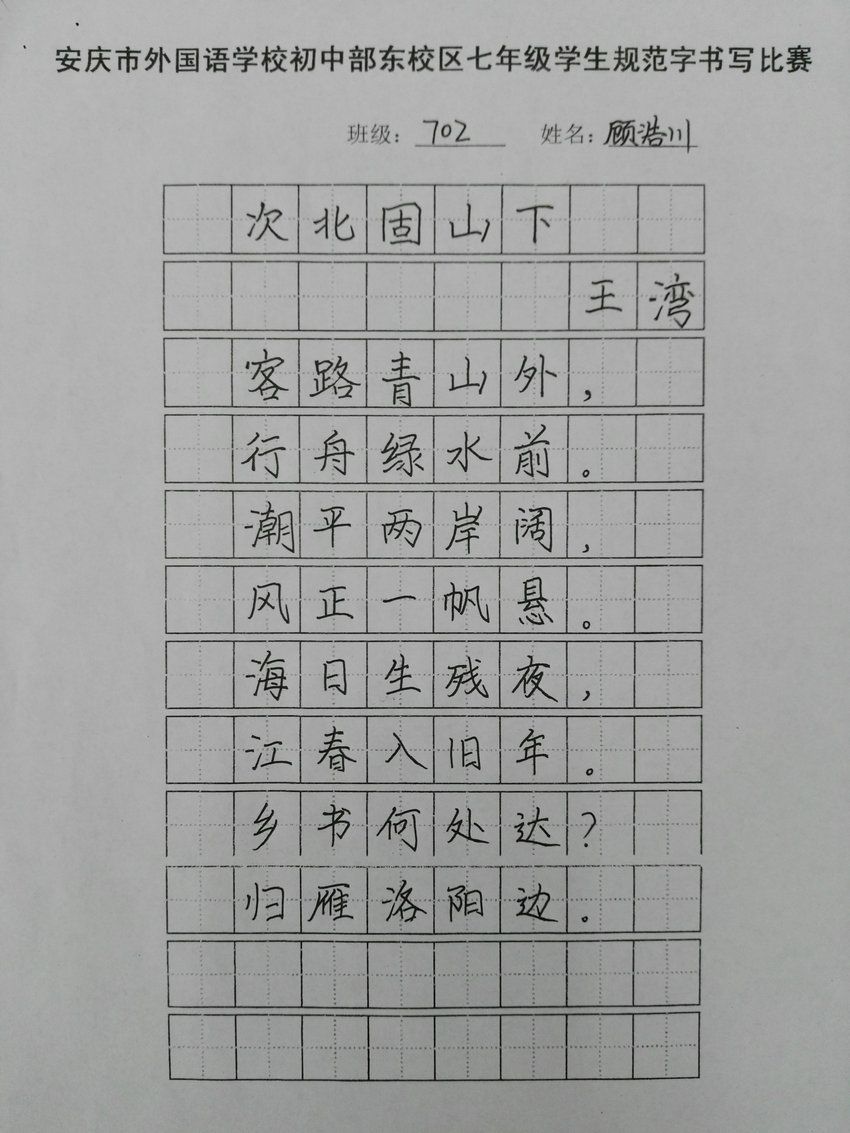 安庆市外国语学校初中部东校区七年级学生规范字书写比赛
班级：702 姓名：顾浩川
次北固山下
王湾
客路青山外，
行舟绿水前。
潮平两岸阔，
风正一帆悬。
海日生残夜，
江春入旧年。
乡书何处达？
归雁洛阳边。